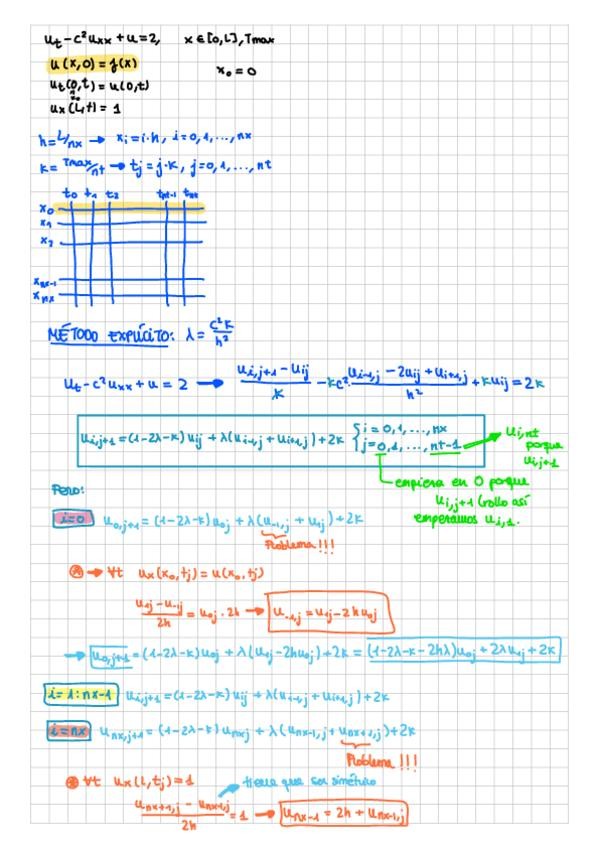 u_t - c²u_xx + u = 2, x ∈ [0, L], Tmax
u(x,0) = f(x)
x_0 = 0
u_t(0,t) = u(0,t)
u_x(L,t) = 1
h = L/nx → x_i = i·h, i = 0, 1, ..., nx
k = Tmax/nt → t_j = j·k, j = 0, 1, ..., nt
t_0 t_1 t_2 t_nt-1 t_nt
x_0
x_1
x_2
x_nx-1
x_nx
MÉTODO EXPLÍCITO: λ = c²k/h²
u_t - c²u_xx + u = 2 → (u_i,j+1 - u_ij)/k - kc² (u_i-1,j - 2u_ij + u_i+1,j)/h² + k u_ij = 2k
u_i,j+1 = (1-2λ-k)u_ij + λ(u_i-1,j + u_i+1,j) + 2k { i = 0, 1, ..., nx
j = 0, 1, ..., nt-1 → u_i,nt
porque
u_i,j+1
empieza en 0 porque
u_i,j+1 (rollo así
empezamos u_i,1.
Pero:
i=0 u_0,j+1 = (1-2λ-k)u_0j + λ(u_-1,j + u_1j) + 2k
Problema!!!
→ ∀t u_x(x_0, t_j) = u(x_0, t_j)
(u_1j - u_-1j)/2h = u_0j · 2h → u_-1,j = u_1j - 2h u_0j
→ u_0,j+1 = (1-2λ-k)u_0j + λ(u_1j - 2hu_0j) + 2k = (1-2λ-k-2hλ)u_0j + 2λu_1j + 2k
i = 1 : nx-1 u_i,j+1 = (1-2λ-k)u_ij + λ(u_i-1,j + u_i+1,j) + 2k
i = nx u_nx,j+1 = (1-2λ-k)u_nx,j + λ(u_nx-1,j + u_nx+1,j) + 2k
Problema!!!
∀t u_x(L, t_j) = 1 → tiene que ser simétrico
(u_nx+1,j - u_nx-1,j)/2h = 1 → u_nx-1 = 2h + u_nx-1,j